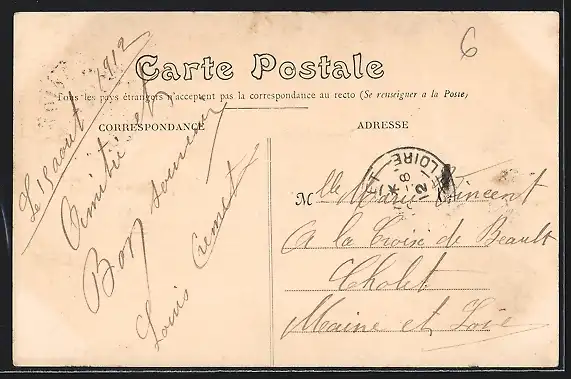 6
Carte Postale
Tous les pays étrangers n'acceptent pas la correspondance au recto (Se renseigner à la Poste)
CORRESPONDANCE
Le 15 aout 1912
Amitié et
Bon souvenir
Louis Cremet
ADRESSE
LOIRE
Mlle Marie Vincent
A la Croix de Beault
Cholet
Maine et Loire